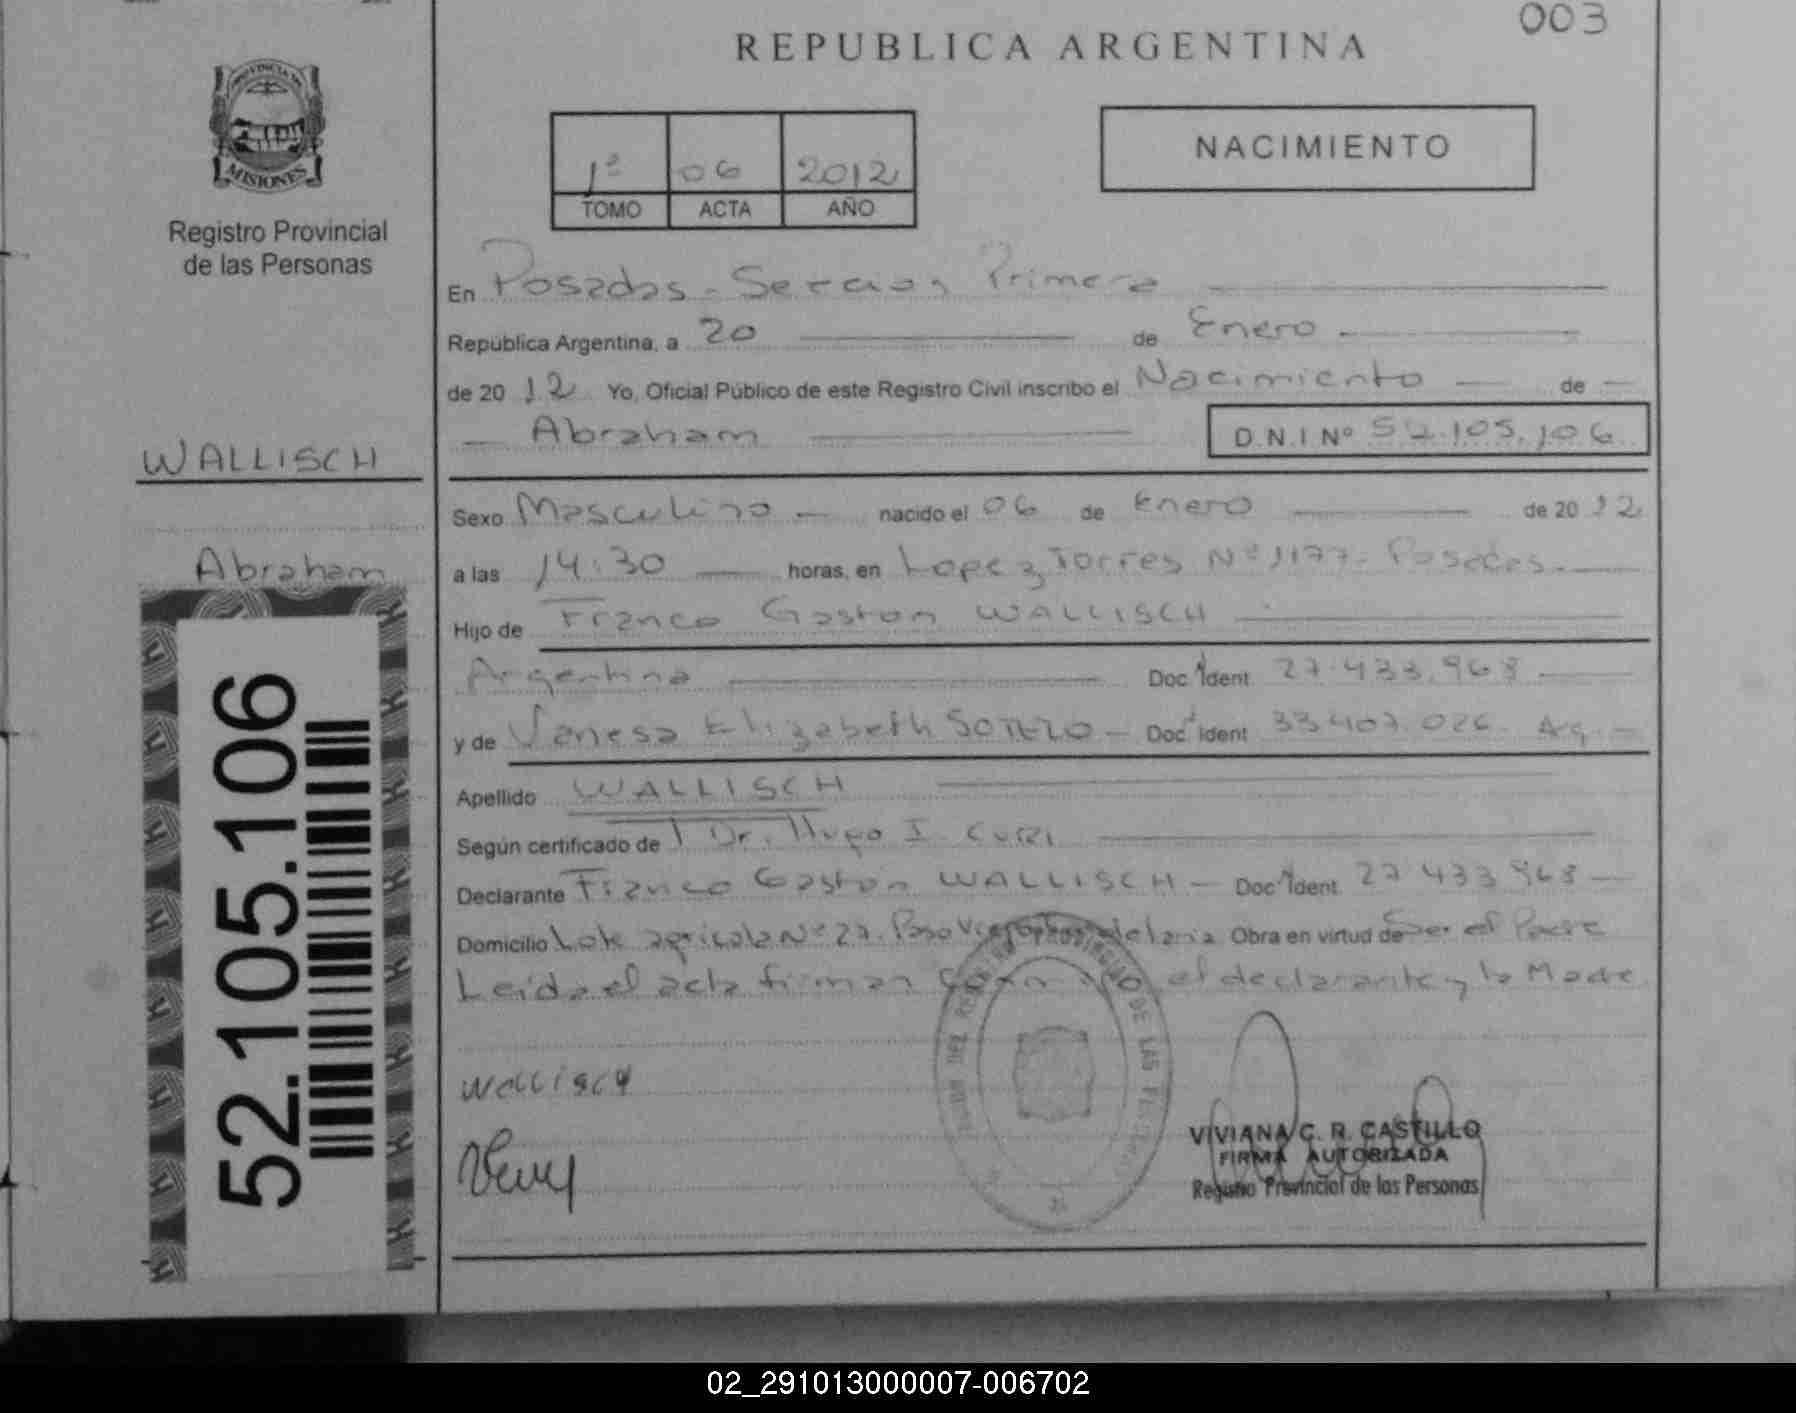 003
REPUBLICA ARGENTINA
PROVINCIA DE
MISIONES
Registro Provincial
de las Personas
1º 06 2012
TOMO ACTA AÑO
NACIMIENTO
En Posadas - Seccion Primera
República Argentina, a 20 de Enero
de 2012 Yo, Oficial Público de este Registro Civil inscribo el Nacimiento de
Abraham D.N.I Nº 52.105.106
WALLISCH
Abraham
Sexo Masculino nacido el 06 de Enero de 2012
a las 14:30 horas, en Lopez Torres Nº 1177 - Posadas.
Hijo de Franco Gaston WALLISCH
Argentina Doc Ident 27.433.963
y de Vanesa Elizabeth Doc Ident 33.407.026 Ag.
Apellido WALLISCH
Según certificado de Dr. Hugo I. CURI
Declarante Franco Gaston WALLISCH Doc Ident 27 433 963
Domicilio Lote agricola Nº 27. Obra en virtud de Ser el Padre
Leida el acta firman conmigo el declarante y la Madre
Wallisch
DE LAS
VIVIANA C. R. CASTILLO
FIRMA AUTORIZADA
Registro Provincial de las Personas
52.105.106
02_291013000007-006702